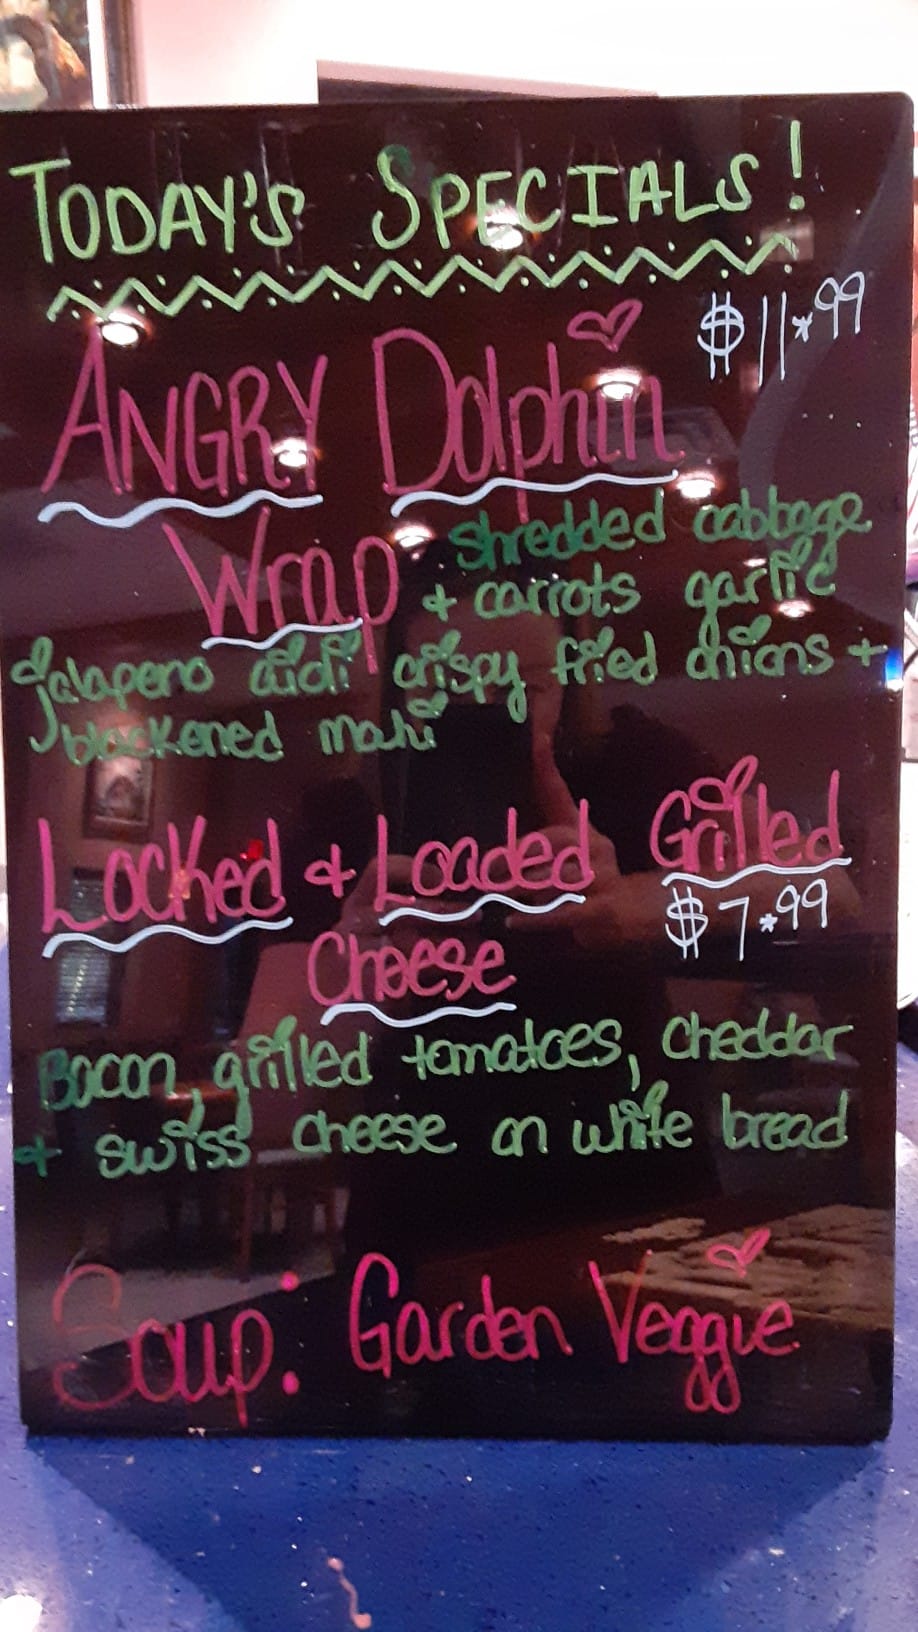 TODAY'S SPECIALS!
$11.99
ANGRY Dolphin
Wrap
shredded cabbage
+ carrots garlic
jalapeno aioli crispy fried onions +
blackened mahi
Locked + Loaded Grilled
$7.99
Cheese
Bacon, grilled tomatoes, cheddar
+ swiss cheese on white bread
Soup: Garden Veggie